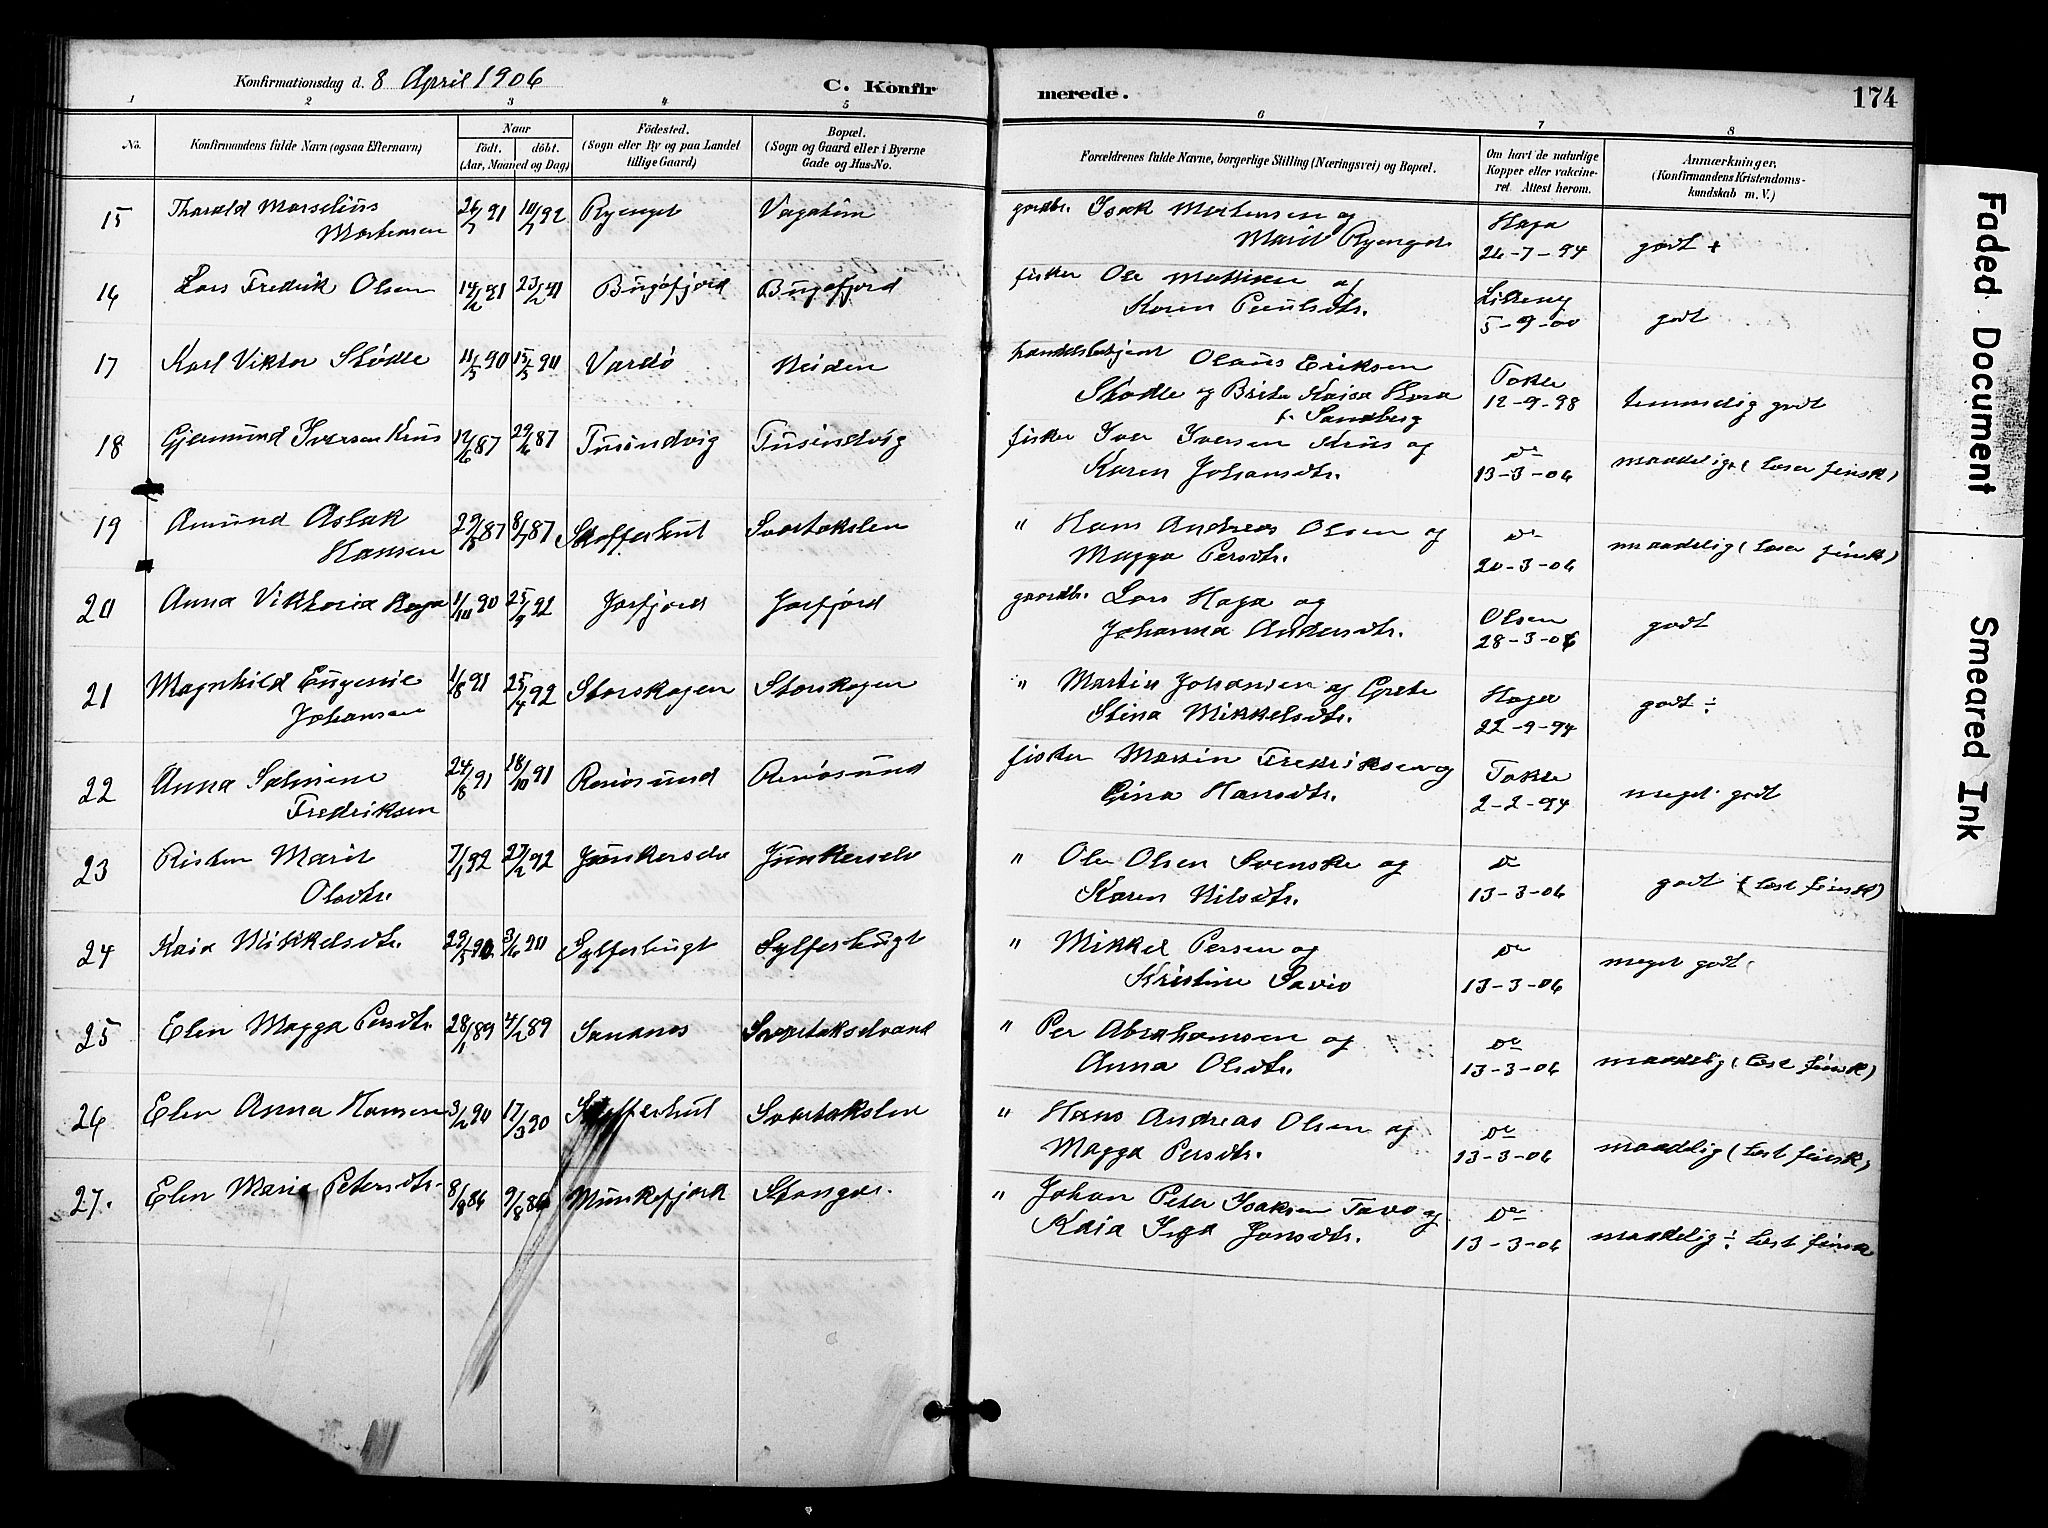 Konfirmationsdag d. 8 April 1906
C. Konfirmerede.
174
1 2 3 4 5 6 7 8
No.
Konfirmandens fulde Navn (ogsaa Efternavn)
Naar
födt. döbt.
(Aar, Maaned og Dag)
Födested.
(Sogn eller By og paa Landet
tillige Gaard)
Bopæl.
(Sogn og Gaard eller i Byerne
Gade og Hus-No.
Forældrenes fulde Navne, borgerlige Stilling (Næringsvei) og Bopæl.
Om havt de naturlige
Kopper eller vakcine-
ret. Attest herom.
Anmærkninger,
(Konfirmandens Kristendoms-
kundskab m. V.)
15 Tharald Marselius 26/7 91 10/7 92 Ryenget gaardbr. Isak Mortensen og Haga
Mortensen Marit Ryenget 26-7-94 godt +
16 Lars Fredrik Olsen 14/2 91 23/2 91 Bugöfjord Bugöfjord fisker Ole Mathisen og
Karen Paulsdtr. 5-9-00 godt
17 Karl Viktor Stödle 11/5 90 15/5 90 Vardö Neiden handelsbetjent Olaus Eriksen
Stödle og Brita Kaisa f. Sandberg 12-9-98 temmelig godt
18 Gjermund Iversen Krus 12/6 87 29/6 87 Tusindvig Tusindvig fisker Iver Iversen Krus og do
Karen Johansdtr. 13-3-06 maadelig (læser finsk)
19 Amund Aslak 87 8/7 87 Svartakslen " Hans Andreas Olsen og do
Hansen Magga Persdtr. 20-3-06 maadelig (læser finsk)
20 Anna Viktoria Haga 11/10 90 25/9 92 Jarfjord Jarfjord gaardbr. Lars Haga og Olsen
Johanna Andersdtr. 28-3-06 godt
21 Magnhild Eugenie 1/8 91 25/4 92 Storskogen Storskogen " Martin Johansen og Grete Haga
Johansen Stina Mikkelsdtr. 22-9-94 godt ÷
22 Anna 24/8 91 18/10 91 Renösund Renösund fisker Martin Fredriksen og
Fredriksen Gina Hansdtr. 2-2-94 meget godt
23 Risten Marit 7/1 92 27/2 92 Junkerselv Junkerselv " Ole Olsen Svenske og do
Olsdtr. Karen Nilsdtr. 13-3-06 godt (læst finsk)
24 Kaia Mikkelsdtr. 29/5 90 3/6 90 Sylferbugt Sylferbugt " Mikkel Persen og do
Kristine Savio 13-3-06 meget godt
25 Elen Magga Persdtr. 28/1 89 4/2 89 Sandnes Svartakselvand " Per Abrahamsen og do
Anna Olsdtr. 13-3-06 maadelig (læst finsk)
26 Elen Anna Hansen 3/2 90 17/3 90 Svartakslen " Hans Andreas Olsen og do
Magga Persdtr. 13-3-06 maadelig (læst finsk)
27. Elen Marie Petersdtr. 8/8 86 9/8 86 Munkefjord " Johan Peter Isaksen Tavo og do
Kaia Inga Jonsdtr. 13-3-06 maadelig ÷ læst finsk
Faded Document
Smeared Ink